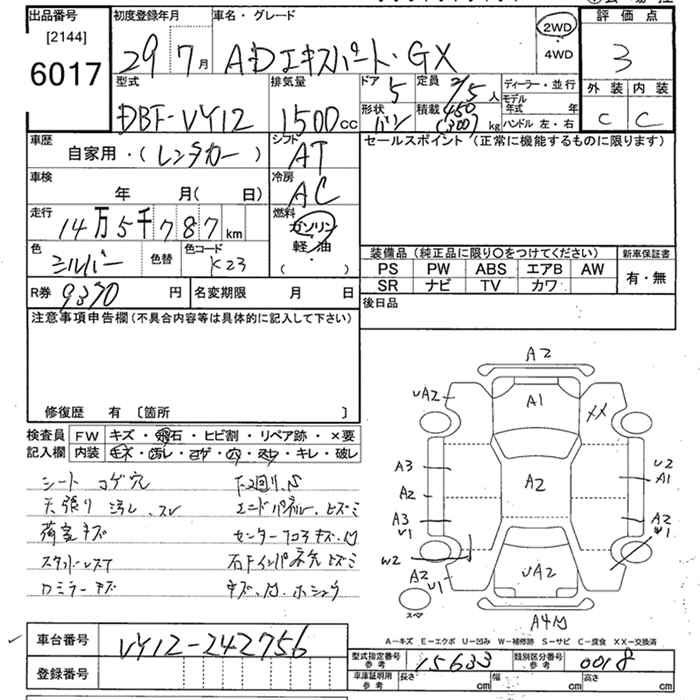 出品番号
[2144]
6017
初度登録年月
29年7月
車名・グレード
ADエキスパート・GX
2WD
・
4WD
評価点
3
外装 内装
C C
型式
DBF-VY12
排気量
1500cc
ドア
5
定員
2/5人
形状
バン
積載
450
(300)kg
ディーラー・並行
モデル年式 年
ハンドル 左・右
車歴
自家用・(レンタカー)
シフト
AT
車検
年 月( 日)
冷房
AC
走行
14万5千787km
燃料
ガソリン
軽油
( )
色
シルバー
色替
色コード
K23
R券 9370円
名変期限 月 日
セールスポイント(正常に機能するものに限ります)
装備品(純正品に限り○をつけてください)
PS PW ABS エアB AW
SR ナビ TV カワ
新車保証書
有・無
後日品
注意事項申告欄(不具合内容等は具体的に記入して下さい)
修復歴 有 [箇所 ]
検査員 FW キズ・飛石・ヒビ割・リペア跡・×要
記入欄 内装 キズ・汚レ・コゲ・穴・スレ・キレ・破レ
シート コゲ穴
天張り 汚レ、スレ
荷室キズ
ロミラーキズ
下回りS
エンドパネル、ヒズミ
センターフロアキズ、凹
車台番号 VY12-242756
登録番号
A2
UA2
A1
XX
A3
U2
A1
A2
A2
A3
U1
A2
W1
W2
A2
U1
UA2
スペア
A4凹
A-キズ E-エクボ U-凹み W-補修跡 S-サビ C-腐食 XX-交換済
型式指定番号
参考
15633
類別区分番号
参考
0018
車庫証明用
参考
長さ cm 幅 cm 高さ cm